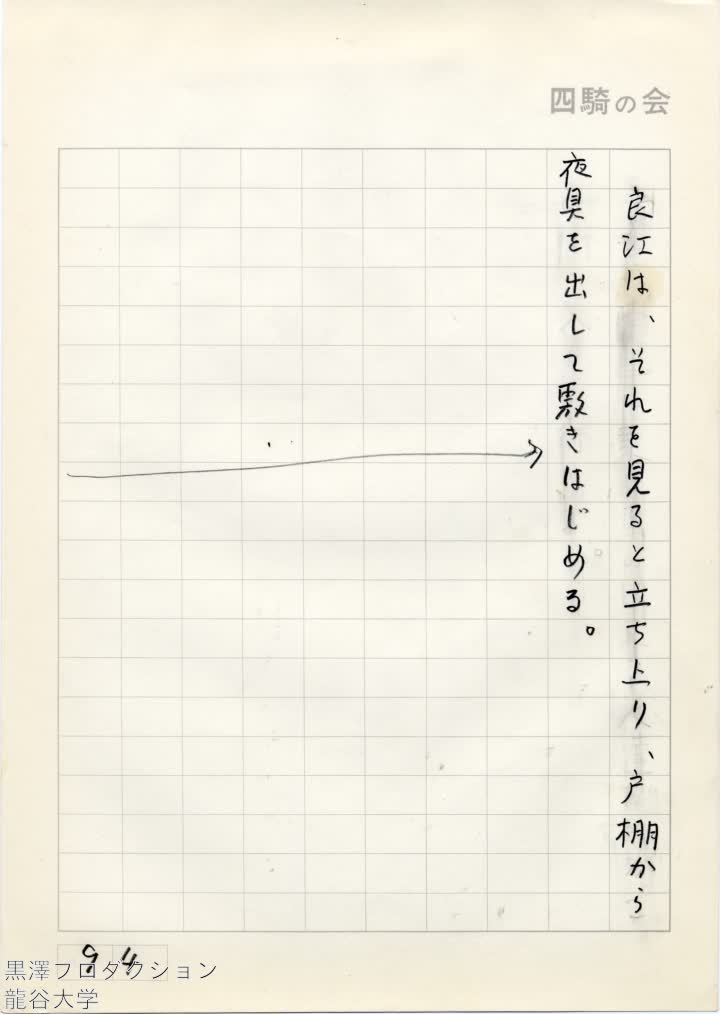 四騎の会
良江は、それを見ると立ち上り、戸棚から
夜具を出して敷きはじめる。
94
黒澤プロダクション
龍谷大学